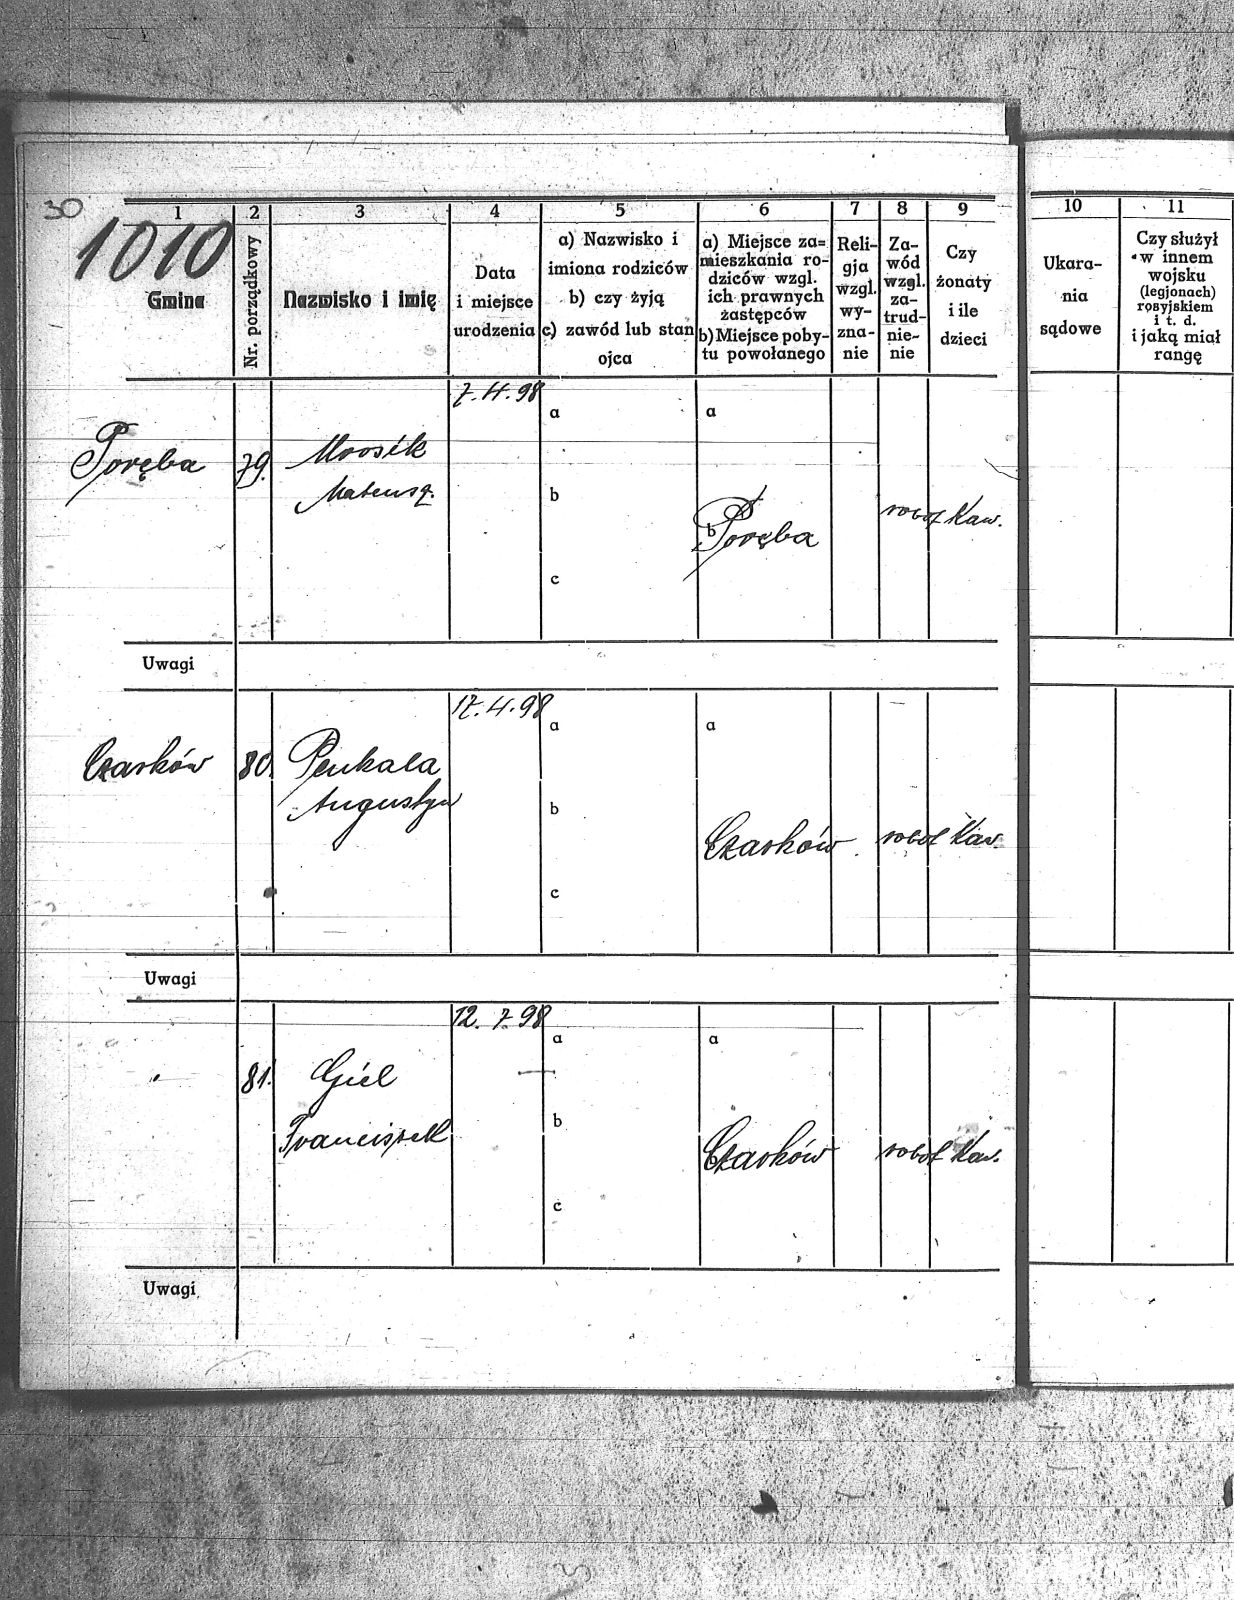 30
1010
1 2 3 4 5 6 7 8 9 10 11
Gmina
Nr. porządkowy
Nazwisko i imię
Data
i miejsce
urodzenia
a) Nazwisko i
imiona rodziców
b) czy żyją
c) zawód lub stan
ojca
a) Miejsce za=
mieszkania ro-
dziców wzgl.
ich prawnych
żastępców
b) Miejsce poby-
tu powołanego
Reli-
gja
wzgl.
wy-
zna-
nie
Za-
wód
wzgl.
za-
trud-
nie-
nie
Czy
żonaty
i ile
dzieci
Ukara-
nia
sądowe
Czy służył
w innem
wojsku
(legjonach)
rosyjskiem
i t. d.
i jaką miał
rangę
7.4.98
a a
Poręba 79. Mrosik
Mateusz.
b
b Poręba robot Kaw.
c
Uwagi
17.4.98
a a
Czarków 80. Penkala
Augustyn
b
Czarków robot Kaw.
c
Uwagi
12.7.98
a a
" 81. Giel
Franciszek
b
Czarków robot Kaw.
c
Uwagi